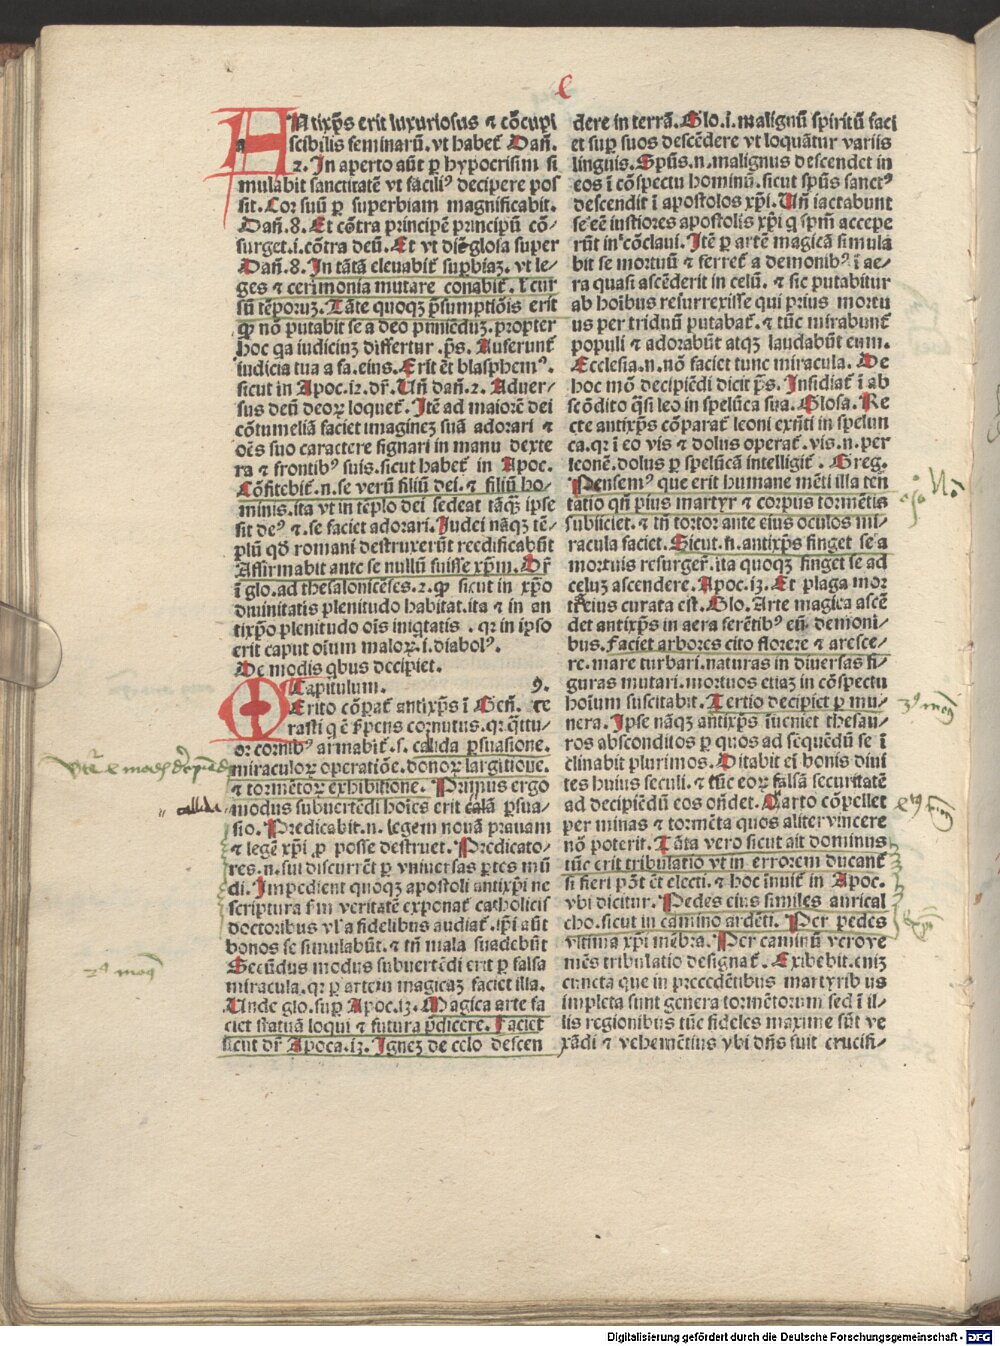 e
ANtixp̄s erit luxuriosus ⁊ cōcupi
scibilis feminarū. vt habet̄ Dañ.
2. In aperto aūt ꝑ hypocrisim si
mulabit sanctitatē vt faciliꝰ decipere pos
sit. Cor suū ꝑ superbiam magnificabit.
Dañ. 8. Et cōtra principē principū cō⸗
surget. i. cōtra deū. Et vt dicit glosa super
Dañ. 8. In tātā eleuabit̄ supbiaꝫ. vt le⸗
ges ⁊ cerimonia mutare conabit̄. ⁊ cur
sū tēporuꝫ. Tāte quoqꝫ p̄sumptiōis erit
ꝙ nō putabit se a deo puniēduꝫ. propter
hoc qa iudiciuꝫ differtur. p̄s. Auferunt̄
iudicia tua a fa. eius. Erit ēt blasphemꝰ.
sicut in Apoc. 12. dr̄. Uñ dañ. 2. Aduer⸗
sus deū deoꝝ loquet̄. Itē ad maiorē dei
cōtumeliā faciet imagineꝫ suā adorari ⁊
oēs suo caractere signari in manu dexte
ra ⁊ frontibꝰ suis. sicut habet̄ in Apoc.
Cōfitebit̄. n. se verū filiū dei. ⁊ filiū ho⸗
minis. ita vt in tēplo dei sedeat tāqꝫ ipse
sit deꝰ ⁊. se faciet adorari. Iudei nāqꝫ tē⸗
plū qd̄ romani destruxerūt reedificabūt
Affirmabit ante se nullū fuisse xp̄m. Dr̄
ī glo. ad thesalonicēses. 2. ꝙ sicut in xp̄o
diuinitatis plenitudo habitat. ita ⁊ in an
tixp̄o plenitudo oīs iniqtatis. qꝛ in ipso
erit caput oīum maloꝝ. i. diabolꝰ.
De modis qbus decipiet.
Capitulum. 9.
MErito cōpat̄ antixp̄s ī Geñ. ce
rasti q ē s̄pens cornutus. qꝛ qttu⸗
or cornibꝰ armabit̄. s. calida psuasione.
miraculoꝝ operatiōe. donoꝝ largitione.
⁊ tormētoꝝ exhibitione. Primus ergo
modus subuertēdi hoīes erit calā psua⸗
sio. Predicabit. n. legem nouā prauam
⁊ legē xp̄i ꝓ posse destruet. Predicato⸗
res. n. sui discurrēt ꝑ vniuersas ptes mū
di. Impedient quoqꝫ apostoli antixp̄i ne
scriptura sm̄ veritatē exponat̄ catholicis
doctoribus vl̓ a fidelibus audiat̄. ip̄i aūt
bonos se simulabūt. ⁊ tñ mala suadebūt
Secūdus modus subuertēdi erit ꝑ falsa
miracula. qꝛ ꝑ artem magicaꝫ faciet illa.
Unde glo. sup Apoc. 13. Magica arte fa
ciet statuā loqui ⁊ futura p̄dicere. Faciet
sicut dr̄ Apoca. 13. Igneꝫ de celo descen
dere in terrā. Glo. i. malignū spiritū faci
et sup suos descēdere vt loquātur variis
linguis. Sp̄us. n. malignus descendet in
eos ī cōspectu hominū. sicut sp̄us sanctꝰ
descendit ī apostolos xp̄i. Uñ iactabunt
se eē iustiores apostolis xp̄i q sp̄m accepe
rūt in cōclaui. Itē ꝑ artē magicā simula
bit se mortuū ⁊ ferret̄ a demonibꝰ ī ae⸗
ra quasi ascēderit in celū. ⁊ sic putabitur
ab hoībus resurrexisse qui prius mortu
us per triduū putabat̄. ⁊ tūc mirabunt̄
populi ⁊ adorabūt atqꝫ laudabūt eum.
Ecclesia. n. nō faciet tunc miracula. De
hoc mō decipiēdi dicit p̄s. Insidiat̄ ī ab
scōdito q̄si leo in spelūca sua. Glosa. Re
cte antixp̄s cōparat̄ leoni exñti in spelun
ca. qꝛ ī eo vis ⁊ dolus operat̄. vis. n. per
leonē. dolus ꝑ spelūcā intelligit̄. Greg.
Pensemꝰ que erit humane mēti illa tēn
tatio qñ pius martyr ⁊ corpus tormētis
subiiciet. ⁊ tñ tortor ante eius oculos mi⸗
racula faciet. Sicut. n. antixp̄s finget se a
mortuis resurger̄. ita quoqꝫ finget se ad
celuꝫ ascendere. Apoc. 13. Et plaga mor
tis eius curata est. Glo. Arte magica ascē
det antixp̄s in aera ferētibꝰ eū demoni⸗
bus. Faciet arbores cito florere ⁊ aresce⸗
re. mare turbari. naturas in diuersas fi⸗
guras mutari. mortuos etiaꝫ in cōspectu
hoīum suscitabit. Tertio decipiet ꝑ mu⸗
nera. Ipse nāqꝫ antixp̄s īueniet thesau⸗
ros absconditos ꝑ quos ad seqūēdū se ī
clinabit plurimos. Ditabit eī bonis diui
tes huius seculi. ⁊ tūc eoꝝ falsā securitatē
ad decipiēdū eos oñdet. Quarto cōpellet
per minas ⁊ tormēta quos aliter vincere
nō poterit. Tāta vero sicut ait dominus
tūc erit tribulatio vt in errorem ducant̄
si fieri pōt ēt electi. ⁊ hoc īnuit̄ in Apoc.
vbi dicitur. Pedes eius similes aurical
cho. sicut in camino ardēti. Per pedes
vltima xp̄i mēbra. Per caminū vero ve
mēs tribulatio designat̄. Exibebit. eniꝫ
cuncta que in precedētibus martyrib us
impleta sunt genera tormētorum sed ī il⸗
lis regionibus tūc fideles maxime sūt ve
xādi ⁊ vehemētius vbi dñs fuit crucifi⸗
callida
2ꝰ moꝰ
3ꝰ moꝰ
No
Digitalisierung gefördert durch die Deutsche Forschungsgemeinschaft - DFG